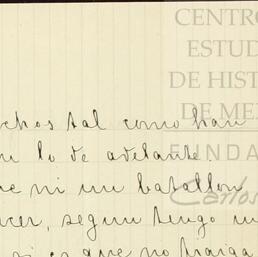 CENTRO
ESTUD
DE HIST
DE ME
FUNDA
Carlos
chos tal como han
lo de adelante.
ni un batallon
cer, segun tengo
si es que no traiga